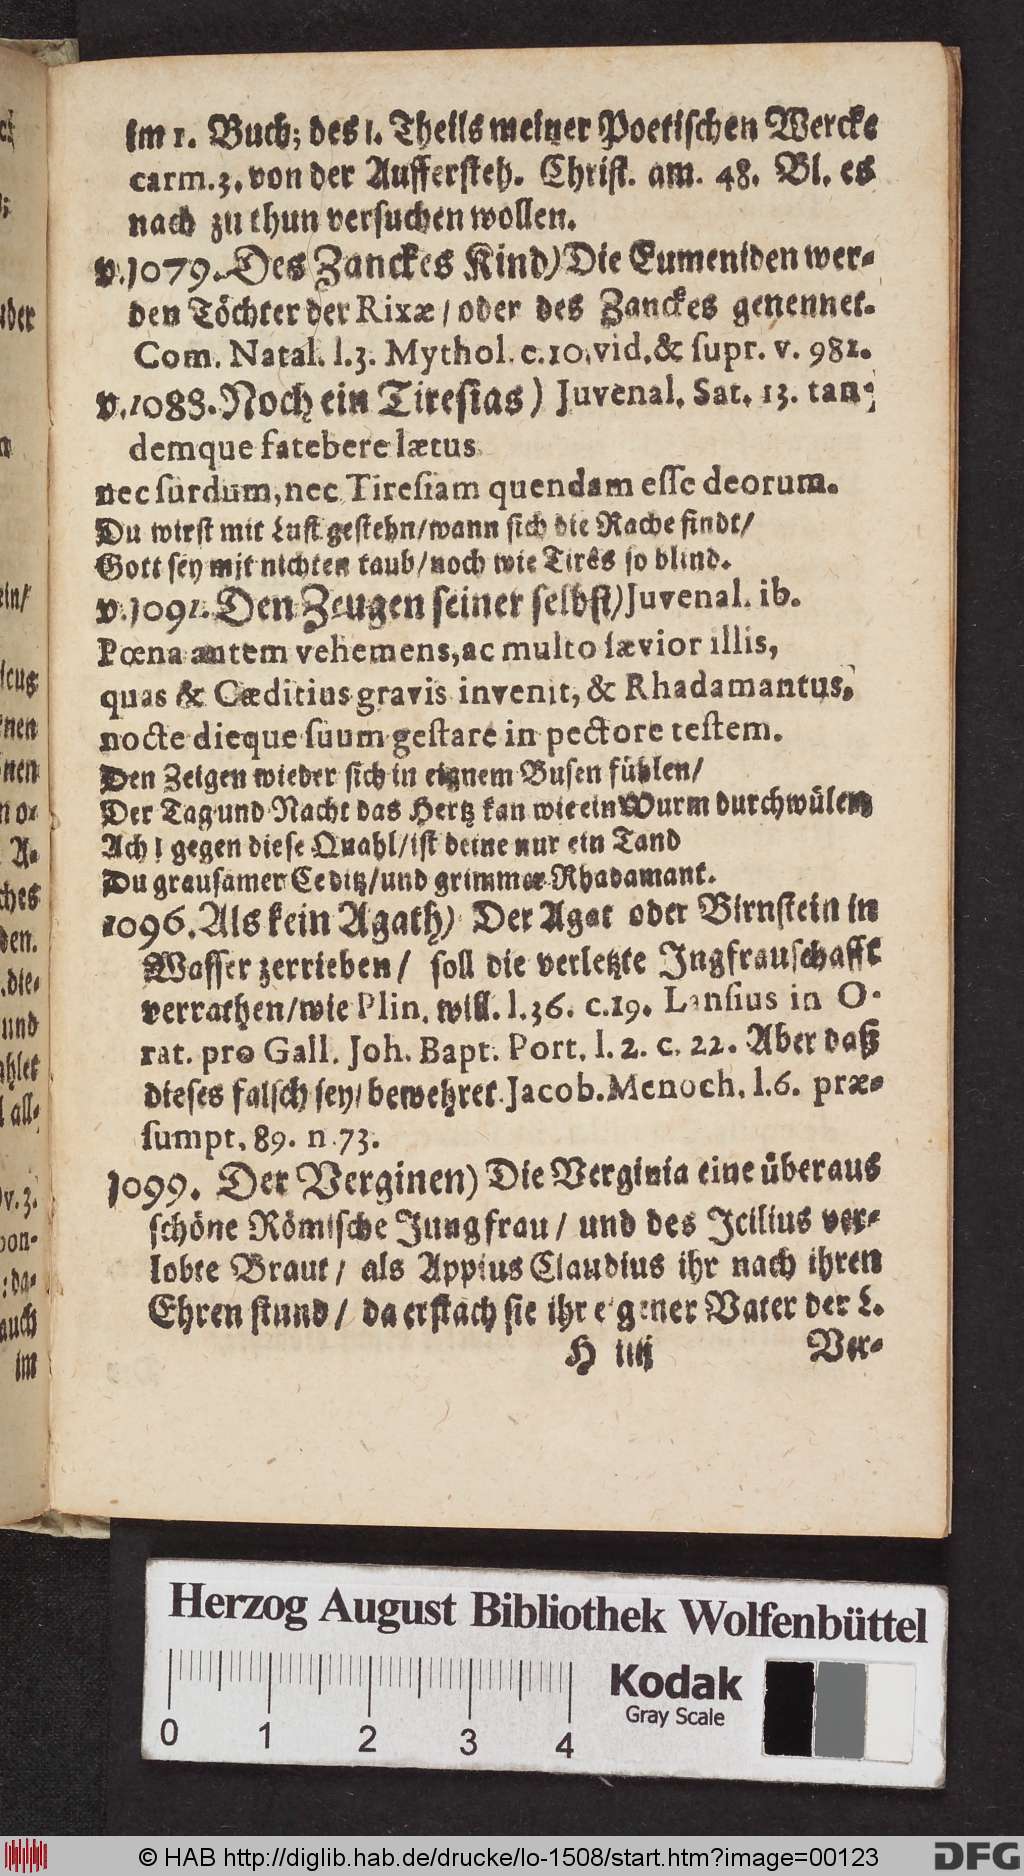 im 1. Buch; des 1. Theils meiner Poetischen Wercke
carm. 3. von der Aufffersteh. Christ. am. 48. Bl. es
nach zu thun versuchen wollen.
v. 1079. Des Zanckes Kind) Die Eumeniden wer-
den Töchter der Rixæ / oder des Zanckes genennet.
Com. Natal. l. 3. Mythol. c. 10. vid. & supr. v. 981.
v. 1088. Noch ein Tiresias) Juvenal. Sat. 13. tan-
demque fatebere lætus
nec surdum, nec Tiresiam quendam esse deorum.
Du wirst mit Lust gestehn / wann sich die Rache findt /
Gott sey mit nichten taub / noch wie Tirês so blind.
v. 1091. Den Zeugen seiner selbst) Juvenal. ib.
Pœna autem vehemens, ac multo sævior illis,
quas & Cæditius gravis invenit, & Rhadamantus,
nocte dieque suum gestare in pectore testem.
Den Zeigen wieder sich in eignem Busen fühlen /
Der Tag und Nacht das Hertz kan wie ein Wurm durchwülen
Ach! gegen diese Quahl / ist deine nur ein Tand
Du grausamer Ceditz / und grimmer Rhadamant.
1096. Als kein Agath) Der Agat oder Birnstein in
Wasser zerrieben / soll die verletzte Jngfrauschafft
verrathen / wie Plin. will. l. 36. c. 19. Lansius in O-
rat. pro Gall. Joh. Bapt. Port. l. 2. c. 22. Aber daß
dieses falsch sey / bewehret Jacob. Menoch. l. 6. præ-
sumpt. 89. n. 73.
1099. Der Verginen) Die Verginia eine überaus
schöne Römische Jungfrau / und des Jcilius ver-
lobte Braut / als Appius Claudius ihr nach ihren
Ehren stund / da erstach sie ihr eigener Vater der L.
H iiij Ver-
Herzog August Bibliothek Wolfenbüttel
Kodak
Gray Scale
0 1 2 3 4
© HAB http://diglib.hab.de/drucke/lo-1508/start.htm?image=00123
DFG